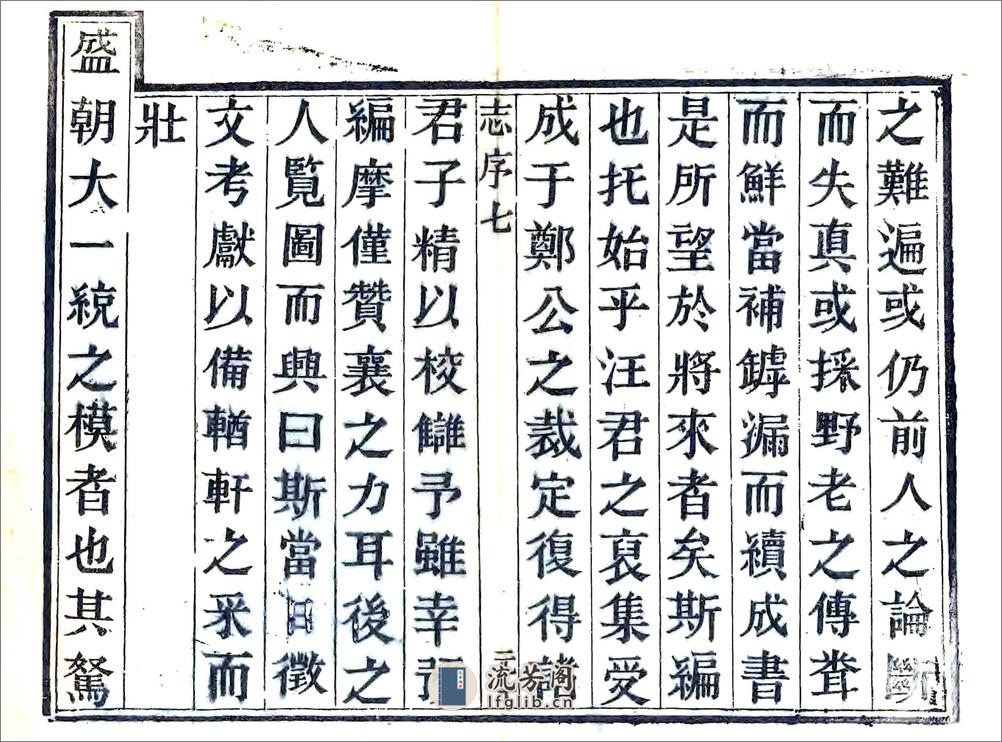 之難遍或仍前人之論
而失真或採野老之傳聋
而鮮當補罅漏而續成書
是所望於將來者矣斯編
也托始乎汪君之裒集受
成于鄭公之裁定復得諸
志序七
二
君子精以校讎予雖幸
編摩僅贊襄之力耳後之
人覽圖而興曰斯當日徵
文考獻以備輶軒之采而
壯
盛朝大一統之模者也其駑
流芳阁
lfglib.cn